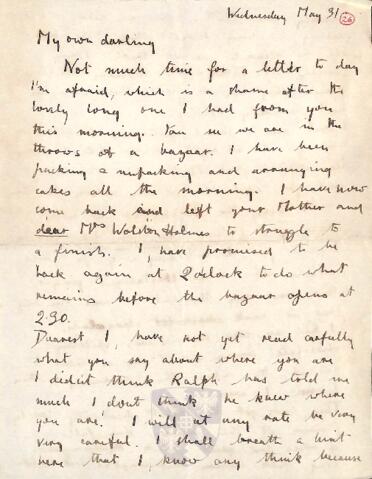 Wednesday May 31
26
My own darling
Not much time for a letter to day
I'm afraid, which is a shame after the
lovely long one I had from you
this morning. You see we are in the
throws of a bazaar. I have been
packing & unpacking and arranging
cakes all the morning. I have now
come back and left your Mother and
dear Mrs Wolsten Holmes to struggle to
a finish. I, have promised to be
back again at 2 oclock to do what
remains before the bazaar opens at
2.30.
Dearest I, have not yet read carfully
what you say about where you are
I did'it think Ralph has told me
much I, dont think he knew where
you are. I will at any rate be very
very careful. I shall breath a hint
here that I, know any think because